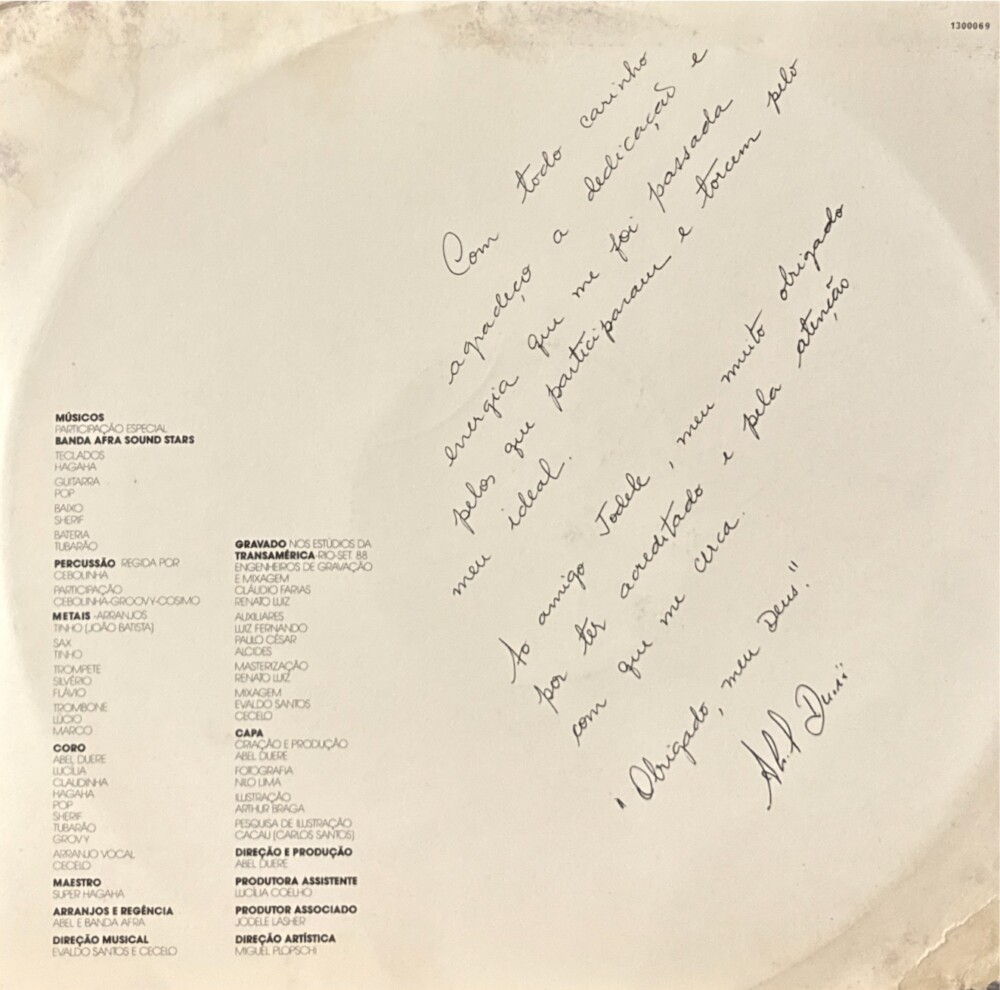 1300069
Com todo carinho
agradeço a dedicação e
energia que me foi passada
pelos que participaram e torcem pelo
meu ideal.
Ao amigo Jodele, meu muito obrigado
por ter acreditado e pela atenção
com que me cerca.
"Obrigado, meu Deus."
Abel Dueri
MÚSICOS
PARTICIPAÇÃO ESPECIAL
BANDA AFRA SOUND STARS
TECLADOS
HAGAHA
GUITARRA
POP
BAIXO
SHERIF
BATERIA
TUBARÃO
PERCUSSÃO REGIDA POR
CEBOLINHA
PARTICIPAÇÃO
CEBOLINHA-GROOVY-COSIMO
METAIS -ARRANJOS
TINHO (JOÃO BATISTA)
SAX
TINHO
TROMPETE
SILVÉRIO
FLÁVIO
TROMBONE
LÚCIO
MARCO
CORO
ABEL DUERE
LUCÍLIA
CLAUDINHA
HAGAHA
POP
SHERIF
TUBARÃO
GROVY
ARRANJO VOCAL
CECELO
MAESTRO
SUPER HAGAHA
ARRANJOS E REGÊNCIA
ABEL E BANDA AFRA
DIREÇÃO MUSICAL
EVALDO SANTOS E CECELO
GRAVADO NOS ESTÚDIOS DA
TRANSAMÉRICA-RIO-SET. 88
ENGENHEIROS DE GRAVAÇÃO
E MIXAGEM
CLÁUDIO FARIAS
RENATO LUIZ
AUXILIARES
LUIZ FERNANDO
PAULO CÉSAR
ALCIDES
MASTERIZAÇÃO
RENATO LUIZ
MIXAGEM
EVALDO SANTOS
CECELO
CAPA
CRIAÇÃO E PRODUÇÃO
ABEL DUERE
FOTOGRAFIA
NILO LIMA
ILUSTRAÇÃO
ARTHUR BRAGA
PESQUISA DE ILUSTRAÇÃO
CACAU (CARLOS SANTOS)
DIREÇÃO E PRODUÇÃO
ABEL DUERE
PRODUTORA ASSISTENTE
LUCÍLIA COELHO
PRODUTOR ASSOCIADO
JODELE LASHER
DIREÇÃO ARTÍSTICA
MIGUEL PLOPSCHI